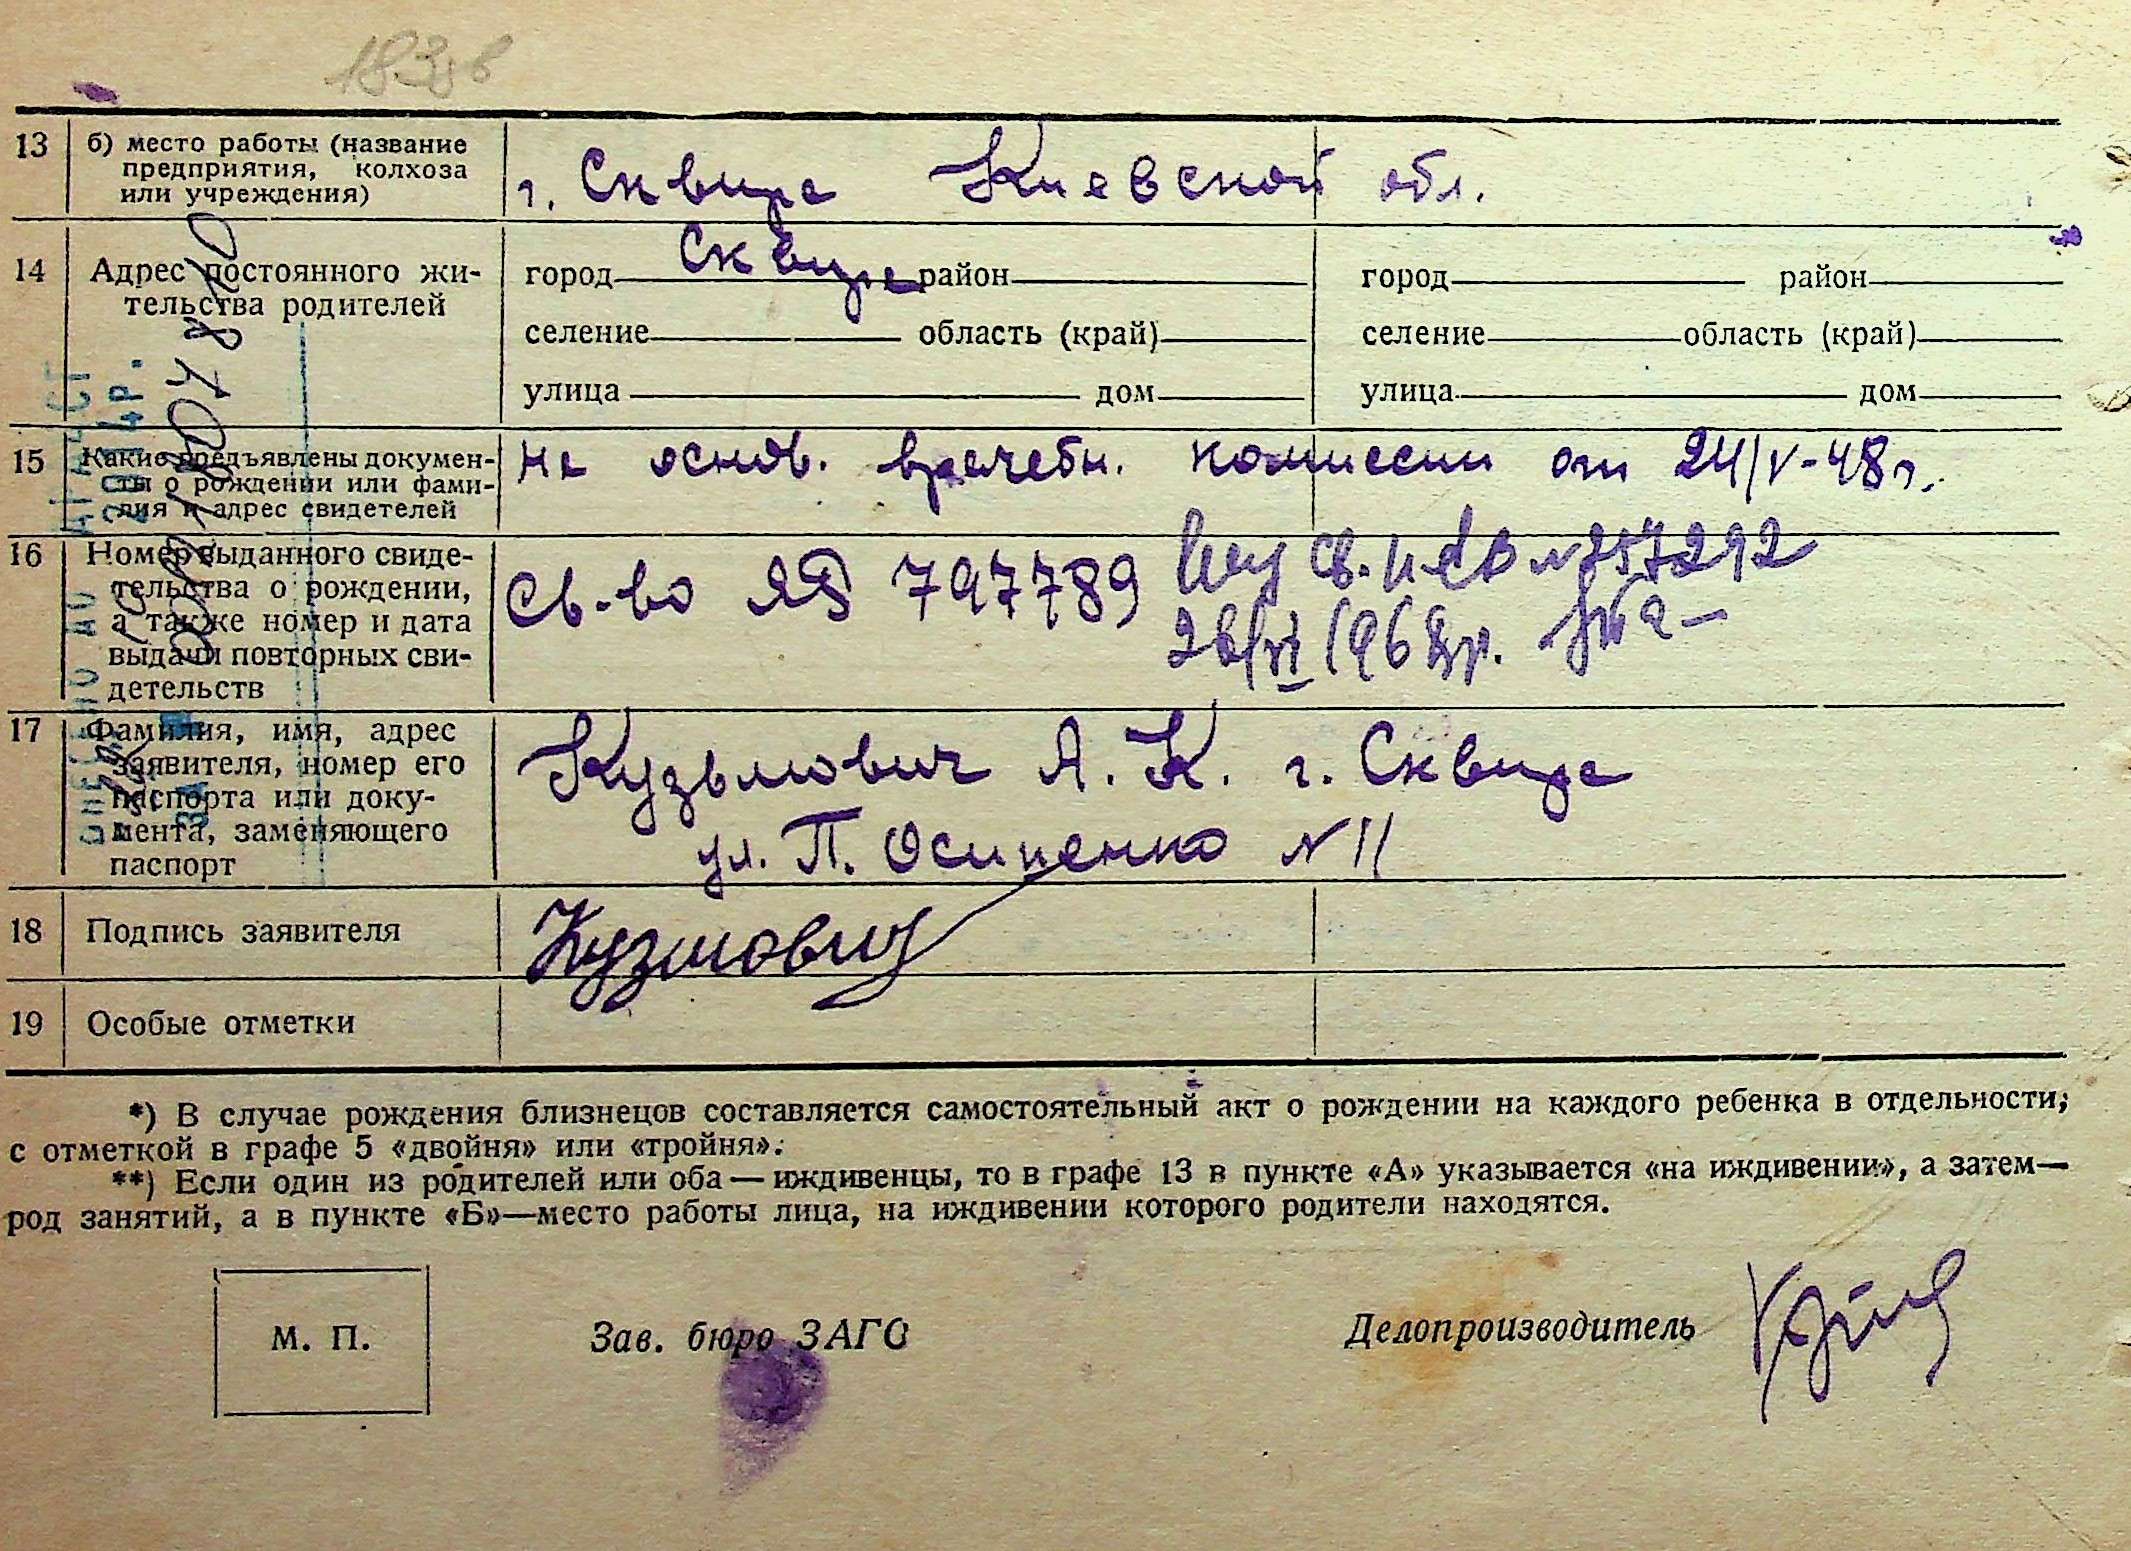 183 в
13 б) место работы (название
предприятия, колхоза
или учреждения)
г. Сквира Киевской обл.
14 Адрес постоянного жи-
тельства родителей
город Сквира район
город район
селение область (край)
селение область (край)
улица дом
улица дом
15 Какие предъявлены докумен-
ты о рождении или фами-
лия и адрес свидетелей
на основ. врачебн. комиссии от 24/V-48 г.
16 Номер выданного свиде-
тельства о рождении,
а также номер и дата
выдачи повторных сви-
детельств
Св-во ЯБ 797789
св. № 257292
1968 р.
17 Фамилия, имя, адрес
заявителя, номер его
паспорта или доку-
мента, заменяющего
паспорт
Кузьмович А. К. г. Сквира
ул. П. Осипенко № 11
18 Подпись заявителя
Кузмович
19 Особые отметки
*) В случае рождения близнецов составляется самостоятельный акт о рождении на каждого ребенка в отдельности;
с отметкой в графе 5 «двойня» или «тройня».
**) Если один из родителей или оба — иждивенцы, то в графе 13 в пункте «А» указывается «на иждивении», а затем—
род занятий, а в пункте «Б»—место работы лица, на иждивении которого родители находятся.
М. П.
Зав. бюро ЗАГС
Делопроизводитель